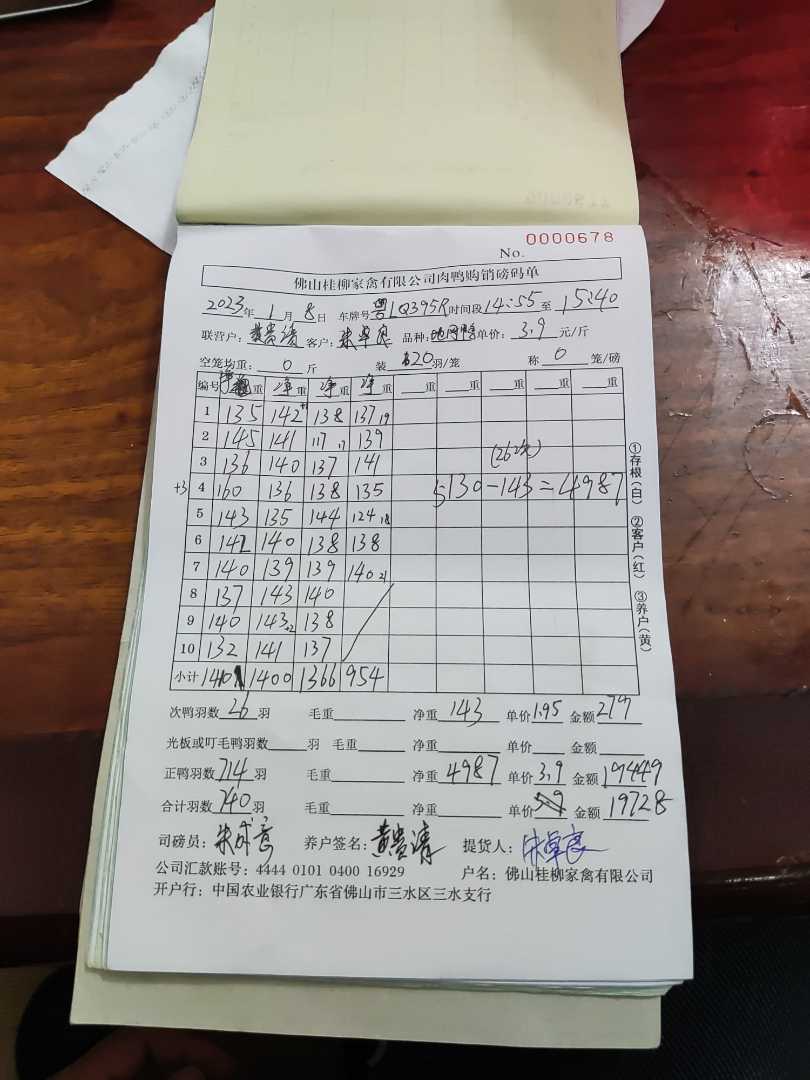 No. 0000678
佛山桂柳家禽有限公司肉鸭购销磅码单
2023年 1月 8日 车牌号 粤LQ395R 时间段 14:55 至 15:40
联营户: 黄贵清 客户: 朱卓良 品种: 单价: 3.9 元/斤
空笼均重: 0 斤 装 20 羽/笼 称 0 笼/磅
编号 净重 净重 净重 净重 重 重 重 重 重
1 135 142 138 137 19
2 145 141 117 17 139
3 136 140 137 141 (26次)
+3 4 160 136 138 135 5130-143=4987
5 143 135 144 124 18
6 142 140 138 138
7 140 139 139 140 21
8 137 143 140
9 140 143 +2 138
10 132 141 137
小计 1410 1400 1366 954
①存根(白) ②客户(红) ③养户(黄)
次鸭羽数 26 羽 毛重 净重 143 单价 1.95 金额 279
光板或叮毛鸭羽数 羽 毛重 净重 单价 金额
正鸭羽数 714 羽 毛重 净重 4987 单价 3.9 金额 19449
合计羽数 740 羽 毛重 净重 单价 金额 19728
司磅员: 朱成彦 养户签名: 黄贵清 提货人: 朱卓良
公司汇款账号: 4444 0101 0400 16929 户名: 佛山桂柳家禽有限公司
开户行: 中国农业银行广东省佛山市三水区三水支行